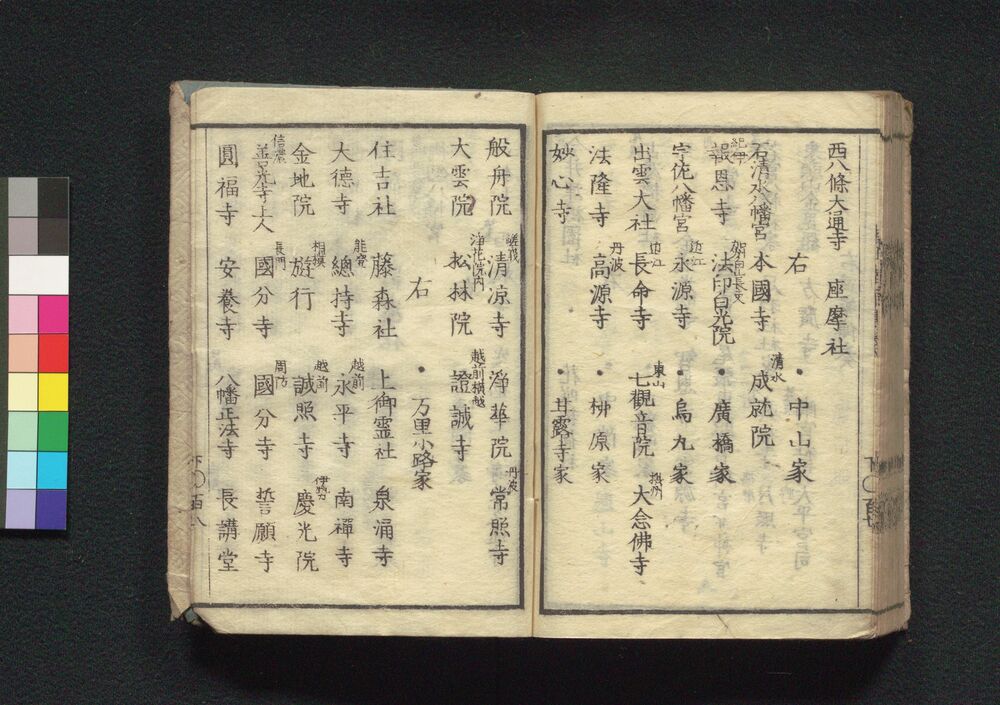 西八條大通寺　座摩社
右　・　中山家
石清水八幡宮　本國寺　清水　成就院
紀伊　報恩寺　法印白光院　・　廣橋家
宇佐八幡宮　近江　永源寺　・　烏丸家
出雲大社　近江　長命寺　東山　七觀音院　攝州　大念佛寺
法隆寺　丹波　高源寺　・　柳原家
妙心寺　・　甘露寺家
般舟院　嵯峨　清凉寺　淨華院　丹波　常照寺
大雲院　浄花院内　松林院　越前横越　證誠寺
右　・　万里小路家
住吉社　藤森社　上御霊社　泉涌寺
大德寺　能登　總持寺　越前　永平寺　南禪寺
金地院　相模　遊行　越前　誠照寺　伊勢　慶光院
信濃　善光寺上人　長門　國分寺　周防　國分寺　誓願寺
圓福寺　安養寺　八幡正法寺　長講堂
下〇百八